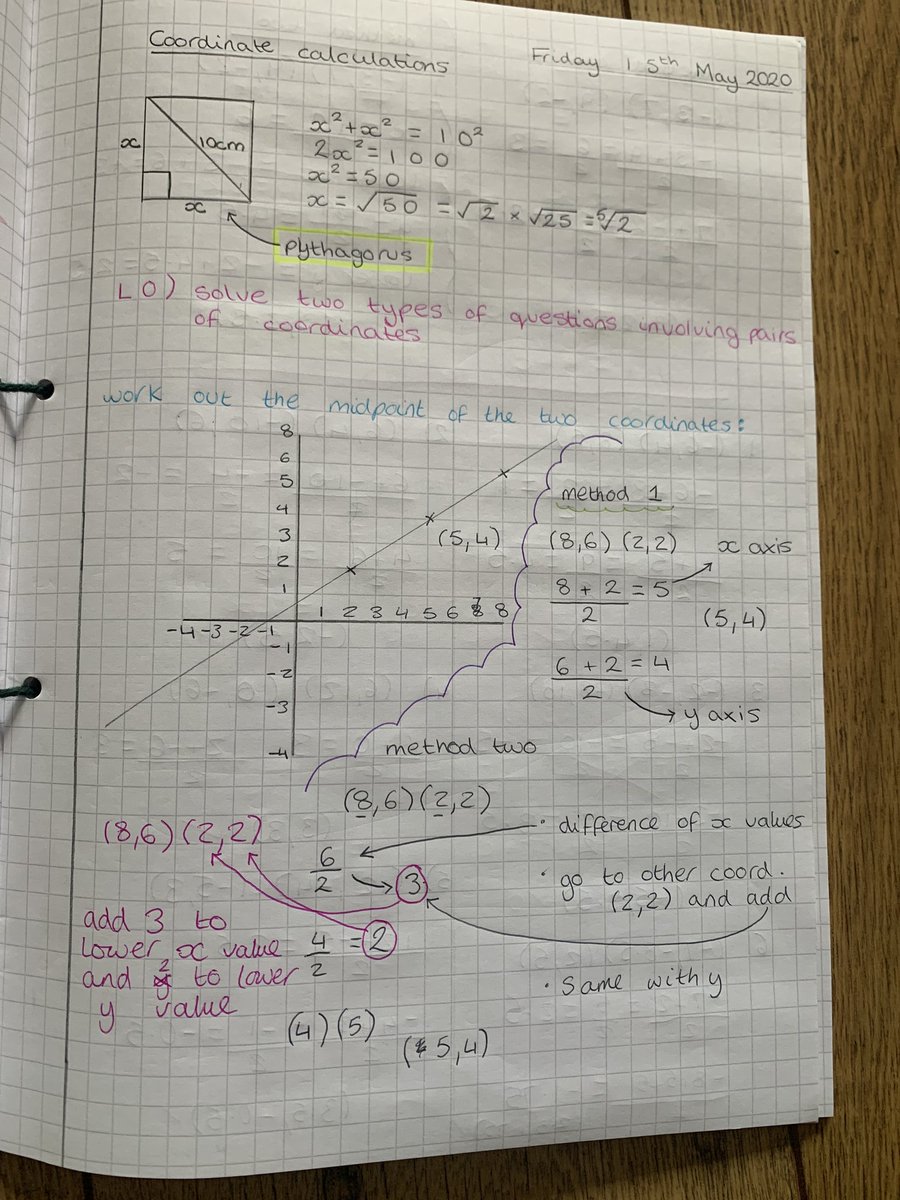 Coordinate calculations
Friday 15th May 2020
x
10cm
x
x² + x² = 10²
2x² = 100
x² = 50
x = √50 = √2 × √25 = 5√2
pythagorus
LO) solve two types of questions involving pairs
of coordinates
work out the midpoint of the two coordinates:
8
6
5
4
3
2
1
1 2 3 4 5 6 7 8
-4 -3 -2 -1
-1
-2
-3
-4
(5,4)
method 1
(8,6) (2,2)
x axis
8 + 2 = 5
2
(5,4)
6 + 2 = 4
2
y axis
method two
(8,6) (2,2)
(8,6) (2,2)
6
2
3
4 = 2
2
add 3 to
lower x value
and 2 to lower
y value
(4) (5)
(5,4)
· difference of x values
· go to other coord.
(2,2) and add
· same with y